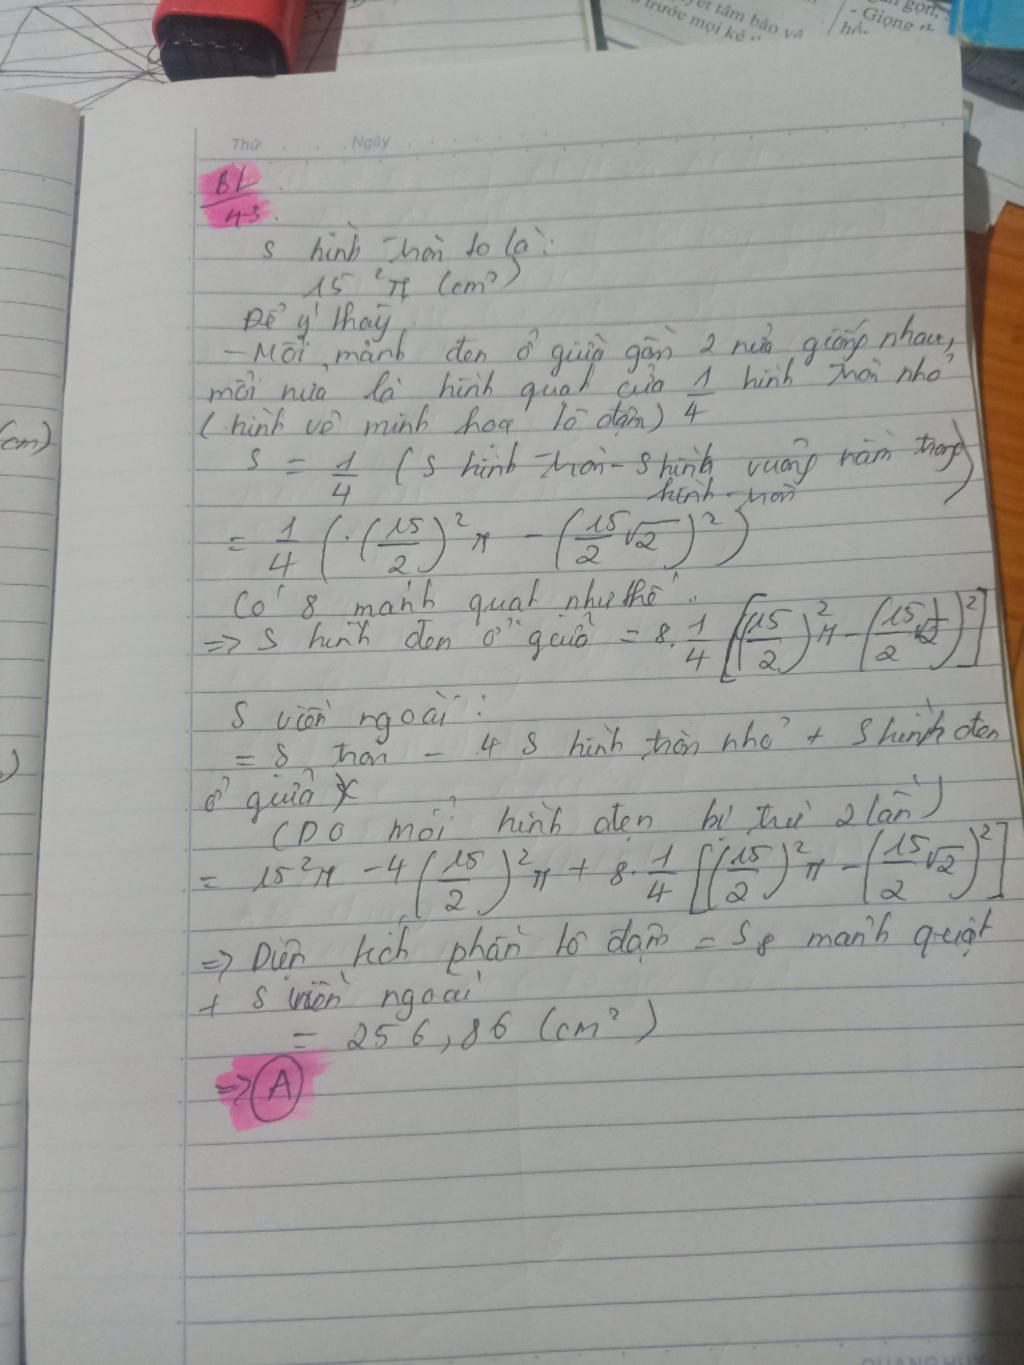 yết tâm bảo vệ
trước mọi kẻ
gọn,
- Giọng
hồ.
Thứ Ngày
BL
4-3
S hình tròn to là:
15²π (cm²)
Để ý thấy,
- Mỗi mảnh đen ở giữa gồm 2 nửa giống nhau,
mỗi nửa là hình quạt của 1/4 hình tròn nhỏ
(hình vẽ minh hoạ tô đậm)
S = 1/4 (S hình tròn - S hình vuông nằm trong
hình tròn)
= 1/4 (·(15/2)²π - (15/2 √2)²)
Có 8 mảnh quạt như thế.
=> S hình đen ở giữa = 8. 1/4 [(15/2)²π - (15/2 √2)²]
S viền ngoài:
= S tròn - 4 S hình tròn nhỏ + S hình đen
ở giữa
(Do mỗi hình đen bị trừ 2 lần)
= 15²π - 4(15/2)²π + 8. 1/4 [(15/2)²π - (15/2 √2)²]
=> Diện tích phần tô đậm = S 8 mảnh quạt
+ S viền ngoài
= 256,86 (cm²)
=> A
cm)
)